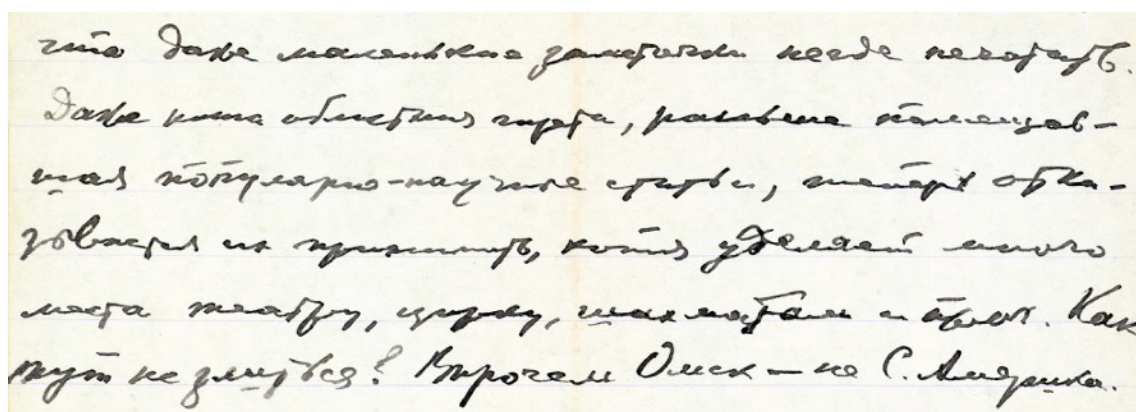 что даже маленькие заметочки негде печатать.
Даже наша областная газета, раньше помещав-
шая популярно-научные статьи, теперь отка-
зывается их принимать, хотя уделяет много
места театру, цирку, шахматам и проч. Как
тут не злиться? Впрочем Омск — не С. Америка.